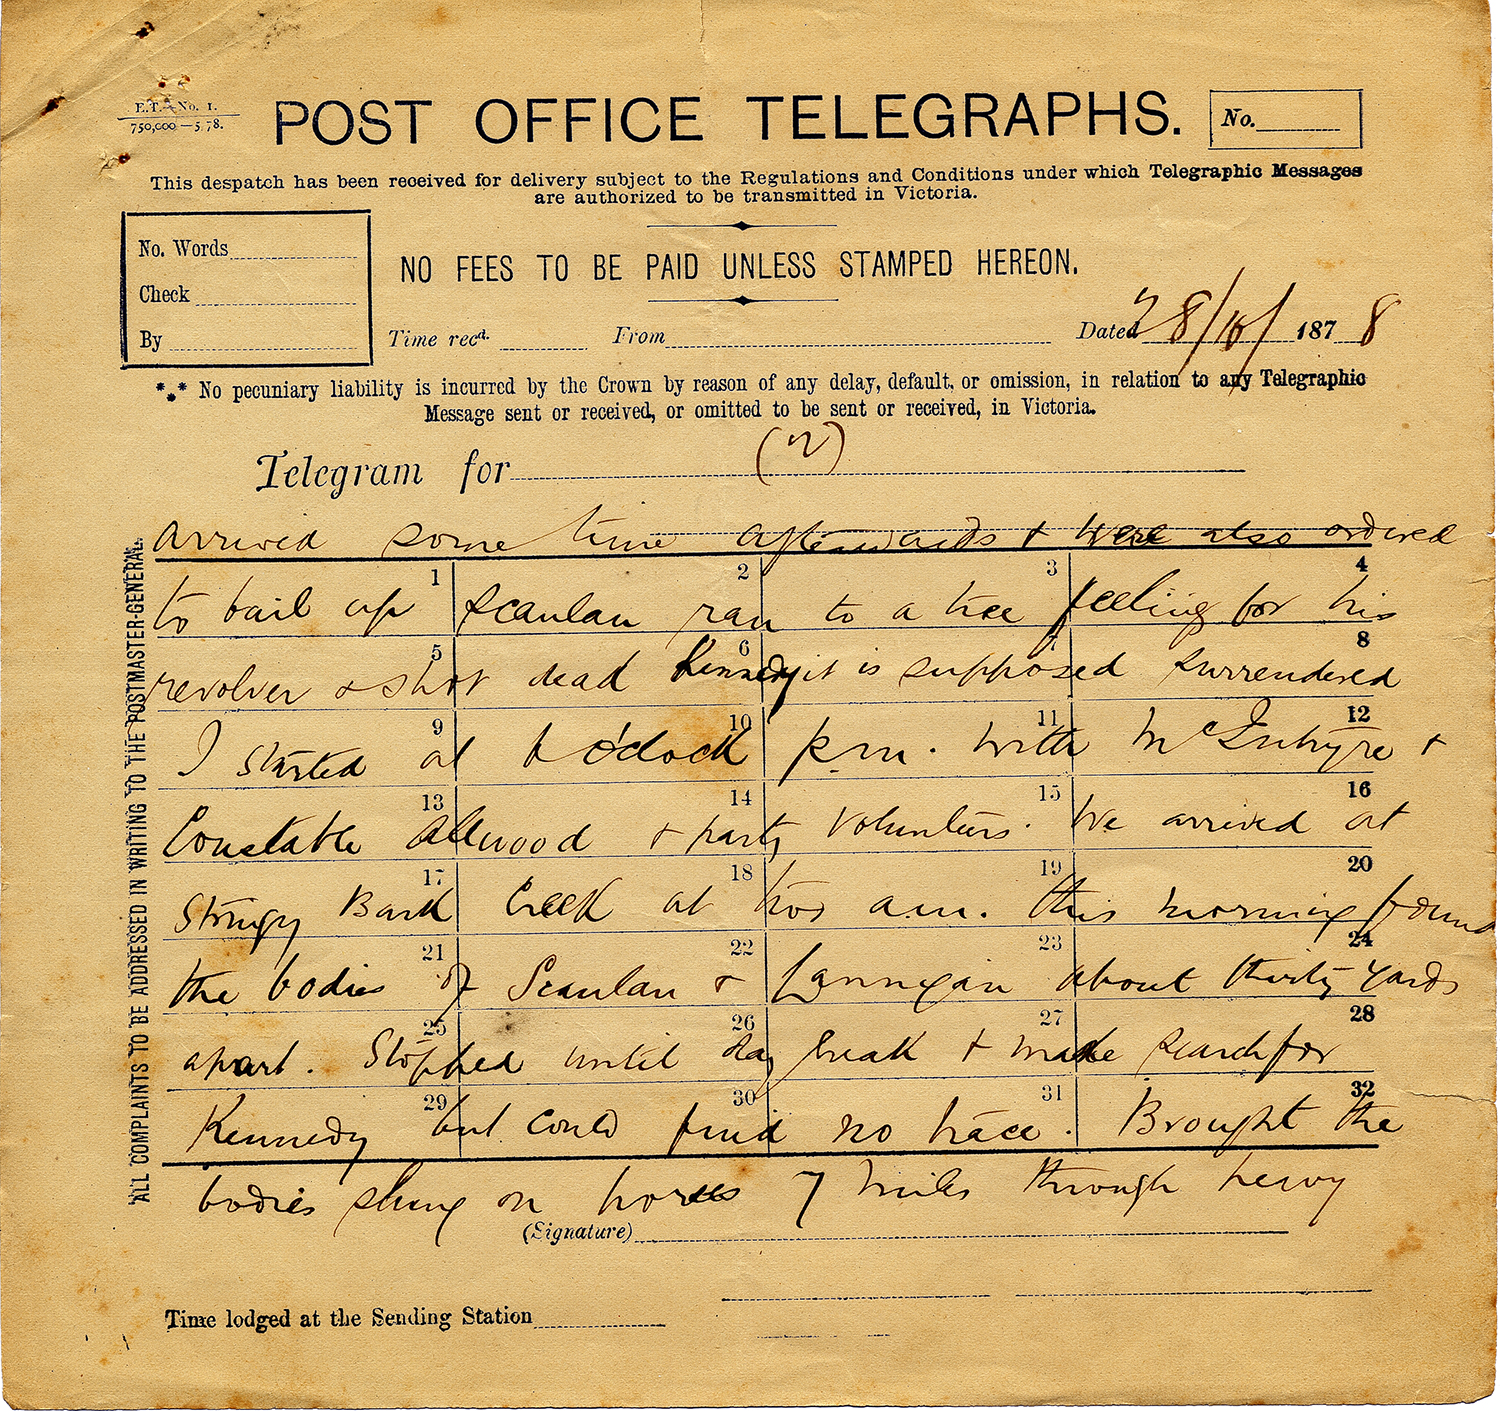 E.T.—No. 1.
750,000—5.78.
POST OFFICE TELEGRAPHS.
No.
This despatch has been received for delivery subject to the Regulations and Conditions under which Telegraphic Messages
are authorized to be transmitted in Victoria.
No. Words
Check
By
NO FEES TO BE PAID UNLESS STAMPED HEREON.
Time recd. From Dated 28/10/ 1878
*** No pecuniary liability is incurred by the Crown by reason of any delay, default, or omission, in relation to any Telegraphic
Message sent or received, or omitted to be sent or received, in Victoria.
Telegram for (2)
ALL COMPLAINTS TO BE ADDRESSED IN WRITING TO THE POSTMASTER-GENERAL.
arrived some time afterwards & were also ordered
1 2 3 4
to bail up Scanlan ran to a tree feeling for his
5 6 7 8
revolver & shot dead Kennedy it is supposed surrendered
9 10 11 12
I started at o'clock p.m. with McIntyre &
13 14 15 16
Constable Allwood & party volunteers. We arrived at
17 18 19 20
Stringy Bark Creek at two a.m. this morning found
21 22 23 24
the bodies of Scanlan & Lonnigan about thirty yards
25 26 27 28
apart. Stopped until day break & made search for
29 30 31 32
Kennedy but could find no trace. Brought the
bodies slung on horses 7 miles through heavy
(Signature)
Time lodged at the Sending Station